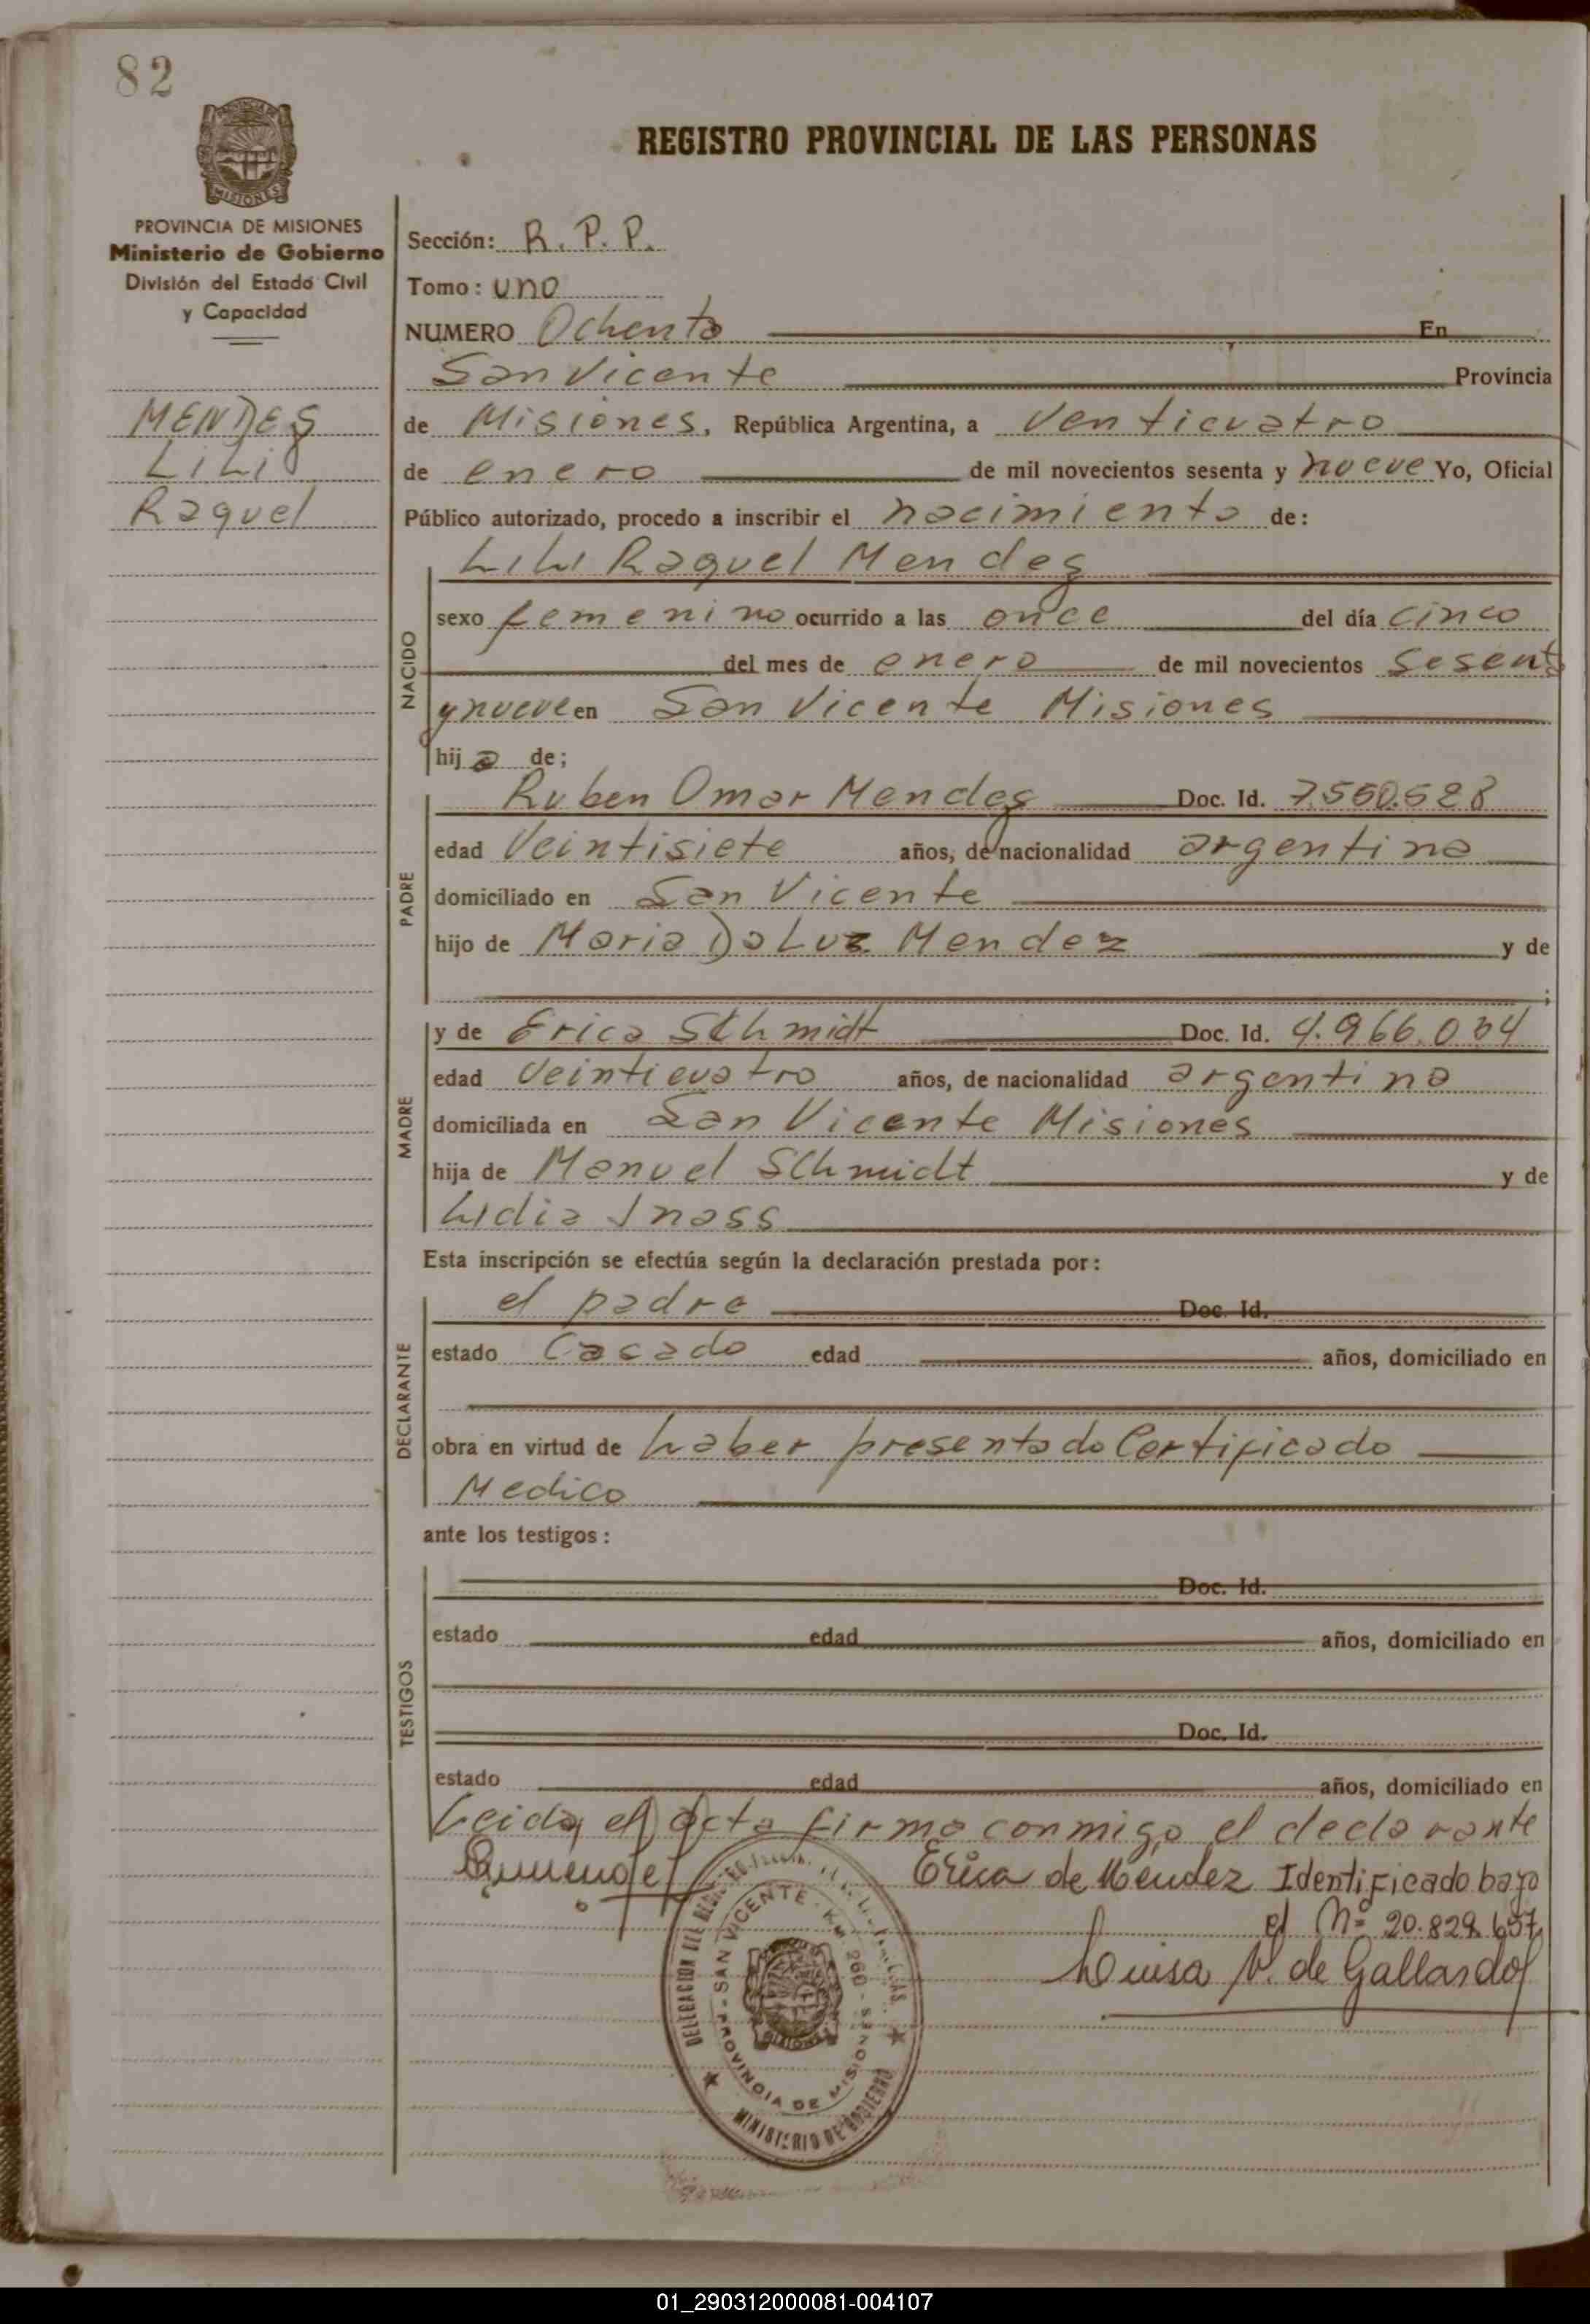 82
REGISTRO PROVINCIAL DE LAS PERSONAS
PROVINCIA DE MISIONES
Ministerio de Gobierno
División del Estado Civil
y Capacidad
MENDES
LiLi
Raquel
Sección: R. P. P.
Tomo: uno
NUMERO Ochenta En
San Vicente Provincia
de Misiones, República Argentina, a Venticuatro
de enero de mil novecientos sesenta y nueve Yo, Oficial
Público autorizado, procedo a inscribir el nacimiento de:
NACIDO
Lili Raquel Mendes
sexo femenino ocurrido a las once del día cinco
del mes de enero de mil novecientos sesenta
y nueve en San Vicente Misiones
hija de;
PADRE
Ruben Omar Mendes Doc. Id. 7.560.628
edad Veintisiete años, de nacionalidad argentina
domiciliado en San Vicente
hijo de Maria Da Luz Mendez y de
MADRE
y de Erica Schmidt Doc. Id. 4.966.034
edad Veinticuatro años, de nacionalidad argentina
domiciliada en San Vicente Misiones
hija de Manuel Schmidt y de
Lidia
Esta inscripción se efectúa según la declaración prestada por:
DECLARANTE
el padre Doc. Id.
estado Casado edad años, domiciliado en
obra en virtud de haber presentado Certificado
Medico
ante los testigos:
TESTIGOS
Doc. Id.
estado edad años, domiciliado en
Doc. Id.
estado edad años, domiciliado en
Leida el acta firma conmigo el declarante
Erica de Mendez Identificado bajo
el Nº 20.829.657
Luisa V. de Gallardo
DELEGACION DEL REGISTRO
SAN VICENTE - KM. 260 -
PROVINCIA DE MISIONES
MINISTERIO DE GOBIERNO
01_290312000081-004107